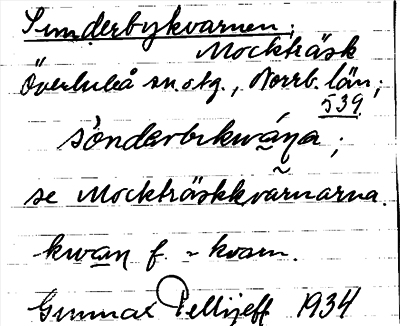 Sunderbykvarnen;
Mockträsk
Överluleå sn. o tg., Norrb. län;
539
sönderbikwána;
se Mockträskkvarnarna.
kwan f. = kvarn.
Gunnar Pellijeff 1934